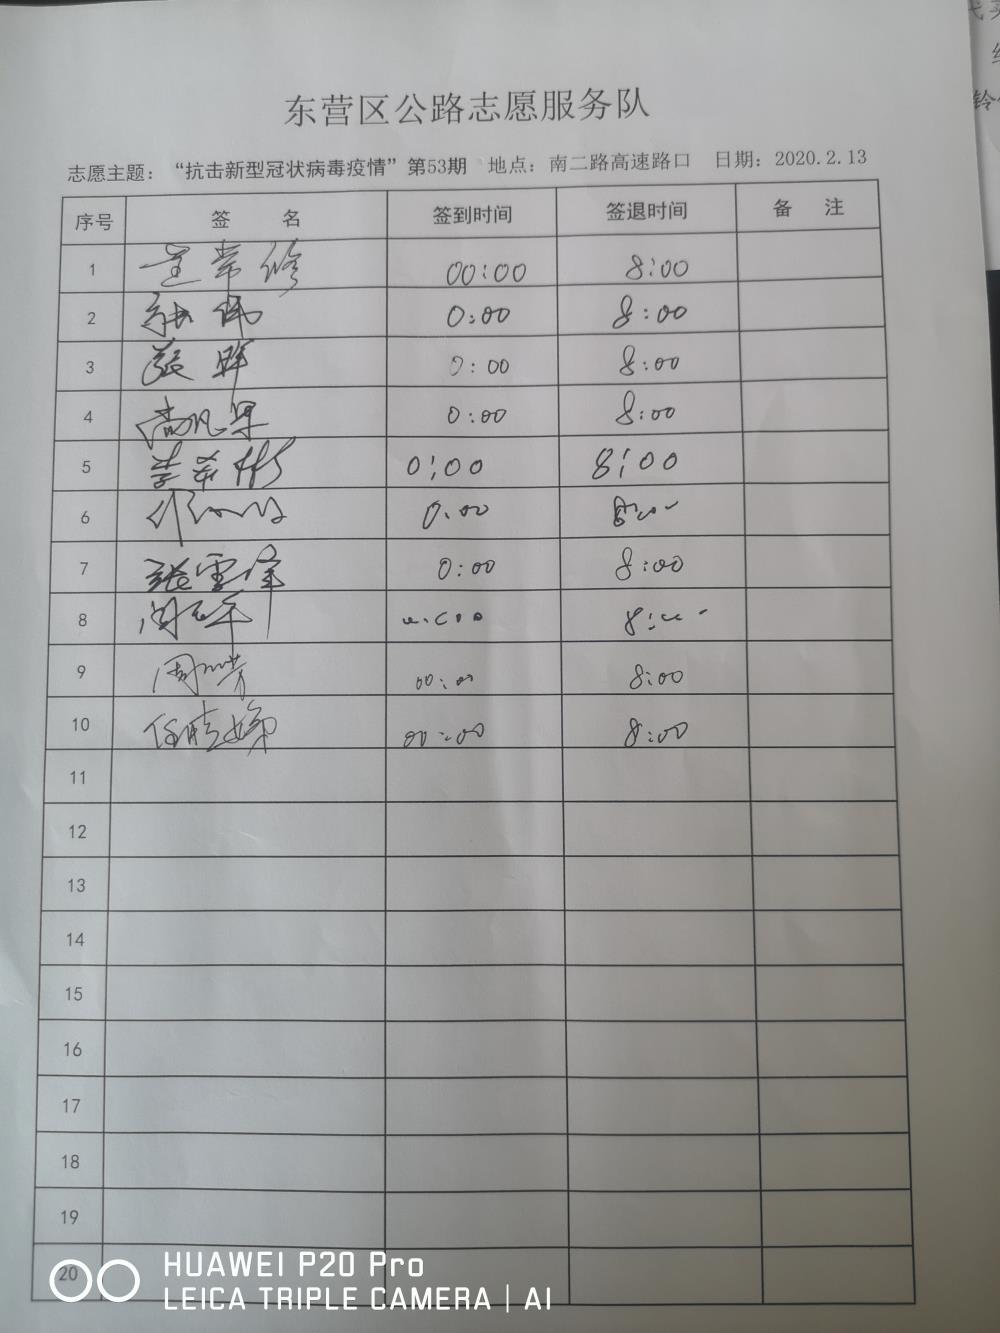 东营区公路志愿服务队
志愿主题：“抗击新型冠状病毒疫情”第53期 地点：南二路高速路口 日期：2020.2.13
序号 签 名 签到时间 签退时间 备 注
1 常修 00:00 8:00
2 0:00 8:00
3 张晖 0:00 8:00
4 0:00 8:00
5 0:00 8:00
6 0:00
7 张雪峰 0:00 8:00
8
9 周 8:00
10 任晓娣 00:00 8:00
11
12
13
14
15
16
17
18
19
20
HUAWEI P20 Pro
LEICA TRIPLE CAMERA | AI
铃